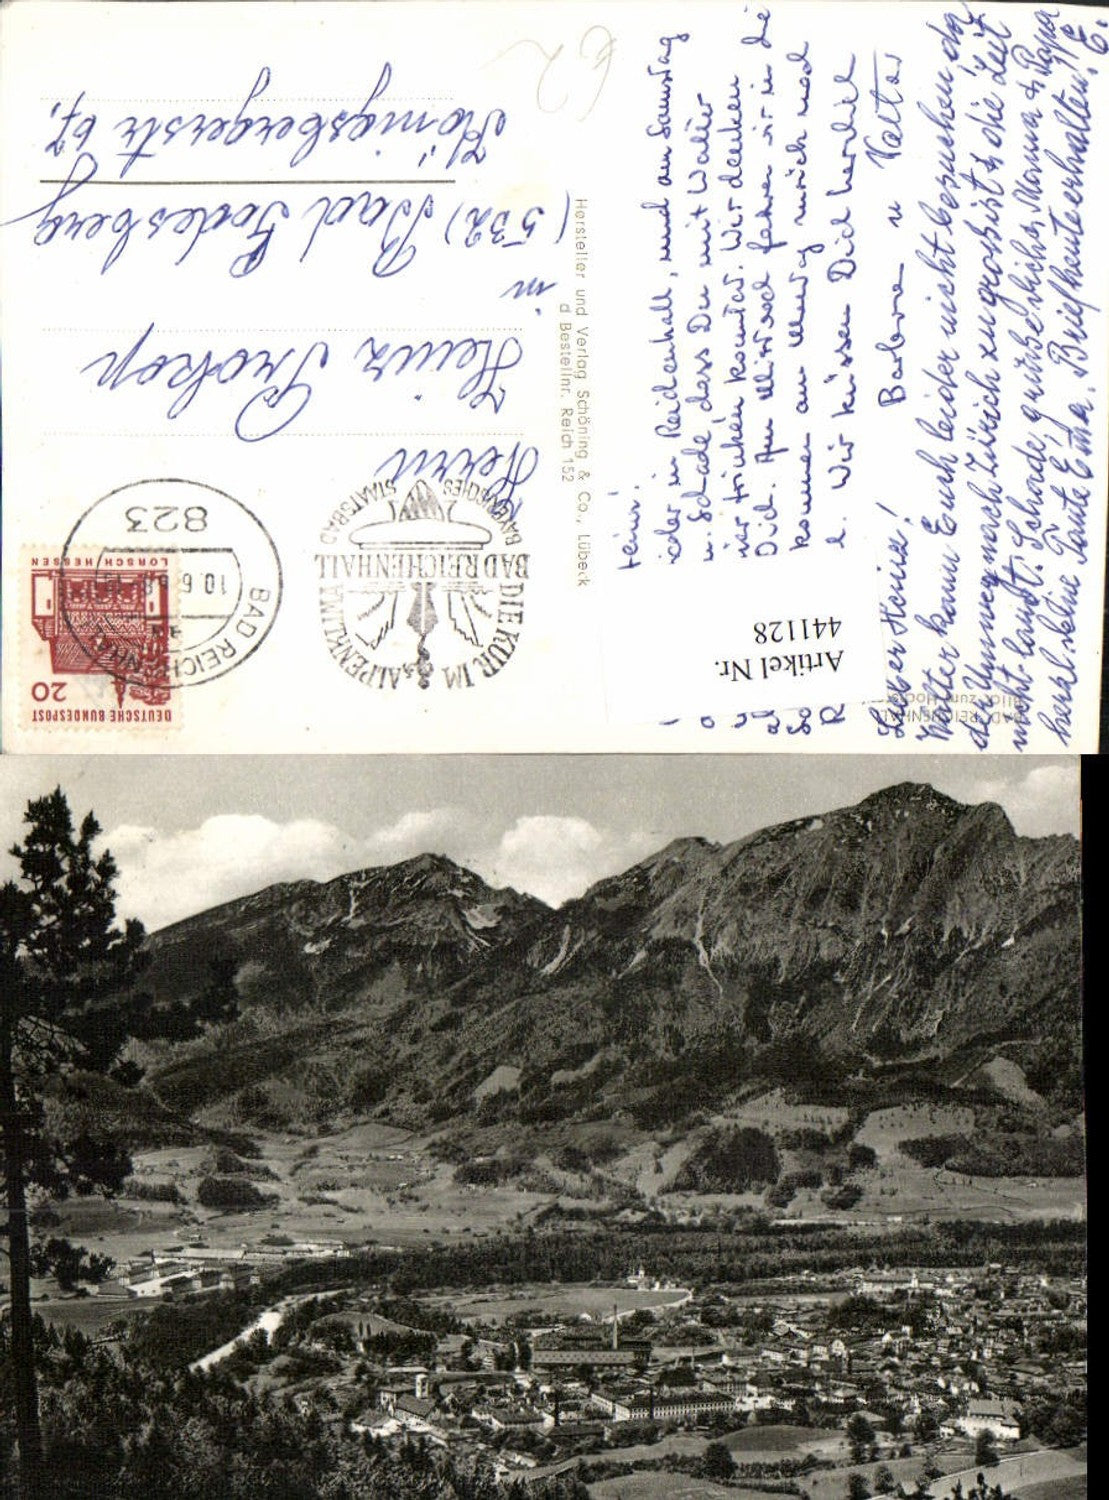 Herrn
Heinz Prokop
in
(532) Bad Godesberg
Königsbergerstr 67,
DEUTSCHE BUNDESPOST
20
LORSCH HESSEN
BAD REICHENHALL
10.6.68
823
DIE KUR IM ALPENKLIMA
BAD REICHENHALL
BAYERISCHES STAATSBAD
Hersteller und Verlag Schöning & Co., Lübeck
d Bestellnr. Reich 152
Artikel Nr.
441128
BAD REICHENHALL
Blick zum Hoch
Heinz!
in Reichenhall, und am Samstag
Schade dass Du mit Walter
kommst. Wir denken
Dich. Am Mittwoch fahren wir in die
kommen am zurück nach
Wir küssen Dich herzlich
Barbara u Vater
Lieber Heinz!
Walter kann Euch leider nicht besuchen, da
der Umweg nach Zürich zu gross ist & die Zeit
nicht langt. Schade, grüße Mama & Papa
herzl. deine Tante Erna. Brief heute erhalten, E.